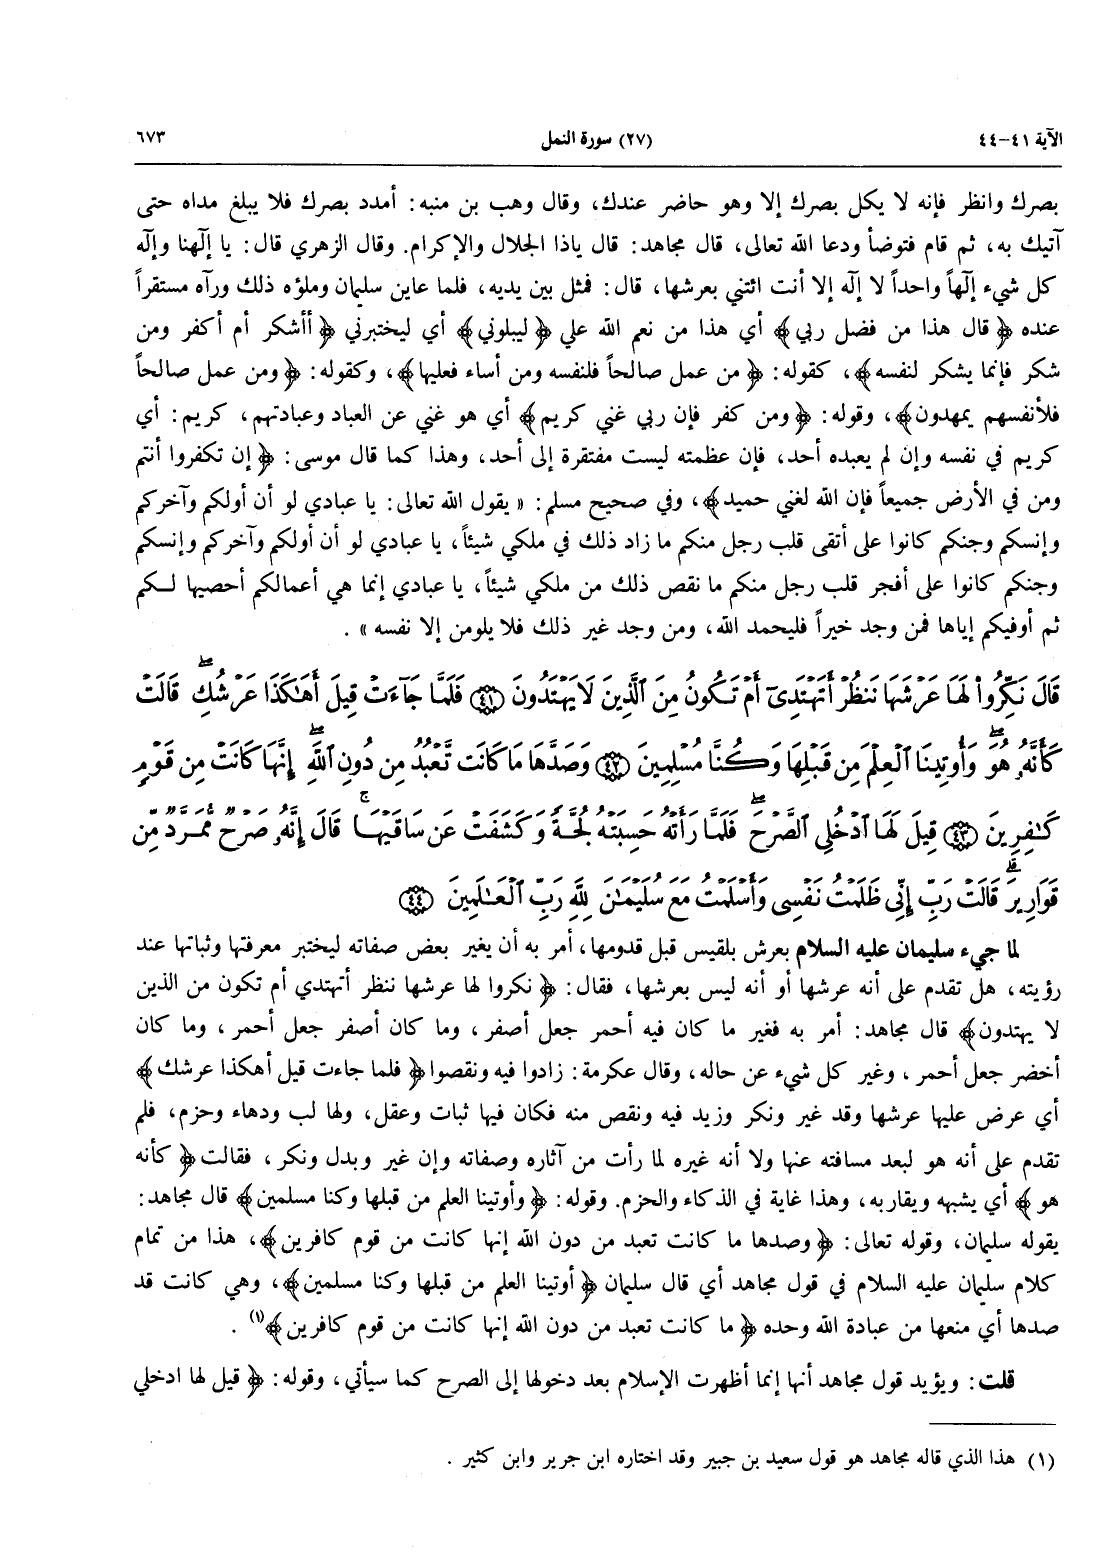 الآية ٤١-٤٤ (٢٧) سورة النمل ٦٧٣
بصرك وانظر فإنه لا يكل بصرك إلا وهو حاضر عندك، وقال وهب بن منبه: أمدد بصرك فلا يبلغ مداه حتى
آتيك به، ثم قام فتوضأ ودعا الله تعالى، قال مجاهد: قال ياذا الجلال والإكرام. وقال الزهري قال: يا إلٓهنا وإلٓه
كل شيء إلٓهاً واحداً لا إلٓه إلا أنت ائتني بعرشها، قال: فمثل بين يديه، فلما عاين سليمان وملؤه ذلك ورآه مستقراً
عنده ﴿ قال هذا من فضل ربي﴾ أي هذا من نعم الله علي ﴿ليبلوني﴾ أي ليختبرني ﴿أأشكر أم أكفر ومن
شكر فإنما يشكر لنفسه﴾، كقوله: ﴿ من عمل صالحاً فلنفسه ومن أساء فعليها﴾، وكقوله: ﴿ومن عمل صالحاً
فلأنفسهم يمهدون﴾، وقوله: ﴿ومن كفر فإن ربي غني كريم﴾ أي هو غني عن العباد وعبادتهم، كريم: أي
كريم في نفسه وإن لم يعبده أحد، فإن عظمته ليست مفتقرة إلى أحد، وهذا كما قال موسى: ﴿إن تكفروا أنتم
ومن في الأرض جميعاً فإن الله لغني حميد﴾، وفي صحيح مسلم: « يقول الله تعالى: يا عبادي لو أن أولكم وآخركم
وإنسكم وجنكم كانوا على أتقى قلب رجل منكم ما زاد ذلك في ملكي شيئاً، يا عبادي لو أن أولكم وآخركم وإنسكم
وجنكم كانوا على أفجر قلب رجل منكم ما نقص ذلك من ملكي شيئاً، يا عبادي إنما هي أعمالكم أحصيها لـكم
ثم أوفيكم إياها فمن وجد خيراً فليحمد الله، ومن وجد غير ذلك فلا يلومن إلا نفسه » .
قَالَ نَكِّرُواْ لَهَا عَرْشَهَا نَنظُرْ أَتَهْتَدِىٓ أَمْ تَكُونُ مِنَ ٱلَّذِينَ لَا يَهْتَدُونَ ﴿٤١﴾ فَلَمَّا جَآءَتْ قِيلَ أَهَـٰكَذَا عَرْشُكِ ۖ قَالَتْ
كَأَنَّهُۥ هُوَ ۖ وَأُوتِينَا ٱلْعِلْمَ مِن قَبْلِهَا وَكُنَّا مُسْلِمِينَ ﴿٤٢﴾ وَصَدَّهَا مَا كَانَت تَّعْبُدُ مِن دُونِ ٱللَّهِ ۖ إِنَّهَا كَانَتْ مِن قَوْمٍ
كَـٰفِرِينَ ﴿٤٣﴾ قِيلَ لَهَا ٱدْخُلِى ٱلصَّرْحَ ۖ فَلَمَّا رَأَتْهُ حَسِبَتْهُ لُجَّةً وَكَشَفَتْ عَن سَاقَيْهَا ۚ قَالَ إِنَّهُۥ صَرْحٌ مُّمَرَّدٌ مِّن
قَوَارِيرَ ۗ قَالَتْ رَبِّ إِنِّى ظَلَمْتُ نَفْسِى وَأَسْلَمْتُ مَعَ سُلَيْمَـٰنَ لِلَّهِ رَبِّ ٱلْعَـٰلَمِينَ ﴿٤٤﴾
لما جيء سليمان عليه السلام بعرش بلقيس قبل قدومها، أمر به أن يغير بعض صفاته ليختبر معرفتها وثباتها عند
رؤيته، هل تقدم على أنه عرشها أو أنه ليس بعرشها، فقال: ﴿ نكروا لها عرشها ننظر أتهتدي أم تكون من الذين
لا يهتدون﴾ قال مجاهد: أمر به فغير ما كان فيه أحمر جعل أصفر، وما كان أصفر جعل أحمر، وما كان
أخضر جعل أحمر، وغير كل شيء عن حاله، وقال عكرمة: زادوا فيه ونقصوا ﴿ فلما جاءت قيل أهكذا عرشك ﴾
أي عرض عليها عرشها وقد غير ونكر وزيد فيه ونقص منه فكان فيها ثبات وعقل، ولها لب ودهاء وحزم، فلم
تقدم على أنه هو لبعد مسافته عنها ولا أنه غيره لما رأت من آثاره وصفاته وإن غير وبدل ونكر، فقالت ﴿ كأنه
هو ﴾ أي يشبهه ويقاربه، وهذا غاية في الذكاء والحزم. وقوله: ﴿ وأوتينا العلم من قبلها وكنا مسلمين﴾ قال مجاهد:
يقوله سليمان، وقوله تعالى: ﴿ وصدها ما كانت تعبد من دون الله إنها كانت من قوم كافرين﴾، هذا من تمام
كلام سليمان عليه السلام في قول مجاهد أي قال سليمان ﴿أوتينا العلم من قبلها وكنا مسلمين﴾، وهي كانت قد
صدها أي منعها من عبادة الله وحده ﴿ ما كانت تعبد من دون الله إنها كانت من قوم كافرين﴾(١) .
قلت: ويؤيد قول مجاهد أنها إنما أظهرت الإسلام بعد دخولها إلى الصرح كما سيأتي، وقوله: ﴿ قيل لها ادخلي
(١) هذا الذي قاله مجاهد هو قول سعيد بن جبير وقد اختاره ابن جرير وابن كثير .